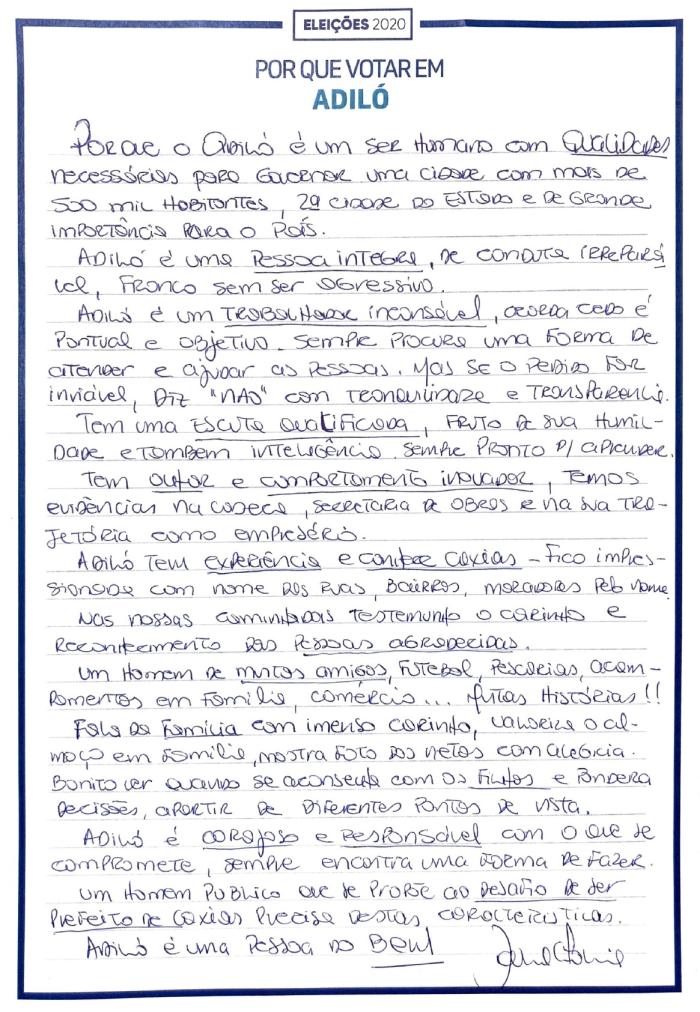 ELEIÇÕES 2020
POR QUE VOTAR EM
ADILÓ
Porque o Adiló é um ser humano com qualidades
necessárias para governar uma cidade com mais de
500 mil habitantes, 2ª cidade do Estado e de grande
importância para o País.
Adiló é uma pessoa integra, de conduta irrepará
vel, franco sem ser agressivo.
Adiló é um trabalhador incansável, acorda cedo é
pontual e objetivo. Sempre procura uma forma de
atender e ajudar as pessoas. Mas se o pedido for
inviável, diz "não" com tranquilidade e transparência.
Tem uma escuta qualificada, fruto de sua humil-
dade e também inteligência. Sempre pronto p/ aprender.
Tem outor e comportamento inovador, temos
evidências na Codeca, Secretaria de Obras e na sua tra-
jetória como empresário.
Adiló tem experiência e conhece Caxias - fico impres-
sionada com nome das ruas, bairros, moradores pelo nome.
Nas nossas caminhadas testemunho o carinho e
reconhecimento das pessoas agradecidas.
Um homem de muitos amigos, futebol, pescarias, acam-
pamentos em família, comércio... muitas histórias!!
Fala da família com imenso carinho, valoriza o al-
moço em família, mostra foto dos netos com alegria.
Bonito ver quando se aconselha com os filhos e pondera
decisões, apartir de diferentes pontos de vista.
Adiló é corajoso e responsável com o que se
compromete, sempre encontra uma forma de fazer.
Um homem público que se propõe ao desafio de ser
prefeito de Caxias precisa destas características.
Adiló é uma pessoa do Bem!